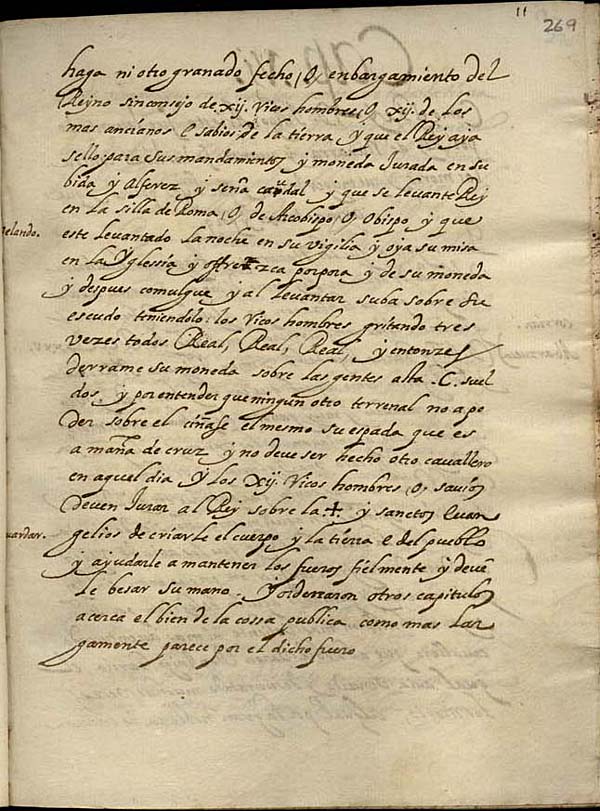 11
269
haga ni otro granado fecho, O, enbargamiento del
Reyno sin consejo de xij. Ricos hombres, O, xij. de los
mas ançianos e sabios de la tierra, y que el Rey aya
sello para sus mandamientos y moneda Jurada en su
bida y Alferez y seña caudal y que se levante Rey
en la silla de Roma, O, de Arcobispo, O, Obispo y que
velando.
este levantado la noche en su vigilia y oya su misa
en la Yglessia y offrezca porpora y de su moneda
y despues comulgue y al levantar suba sobre su
escudo teniendolo los Ricos hombres gritando tres
vezes todos Real, Real, Real, y entonze
derrame su moneda sobre las gentes asta .C. suel
dos, y por entender que ningun otro terrenal no a po
der sobre el cinase el mesmo su espada que es
a mañ̃a de cruz y no deve ser hecho otro cavallero
en aquel dia y los xij. Ricos hombres, o, savios
deven Jurar al Rey sobre la +. y sanctos Evan
uardar.
gelios de criarle el cuerpo y la tierra e del pueblo
y ayudarle a mantener los fueros fielmente y deve
le besar su mano. Y ordenaron otros capitulos
acerca el bien de la cossa publica como mas lar
gamente parece por el dicho fuero